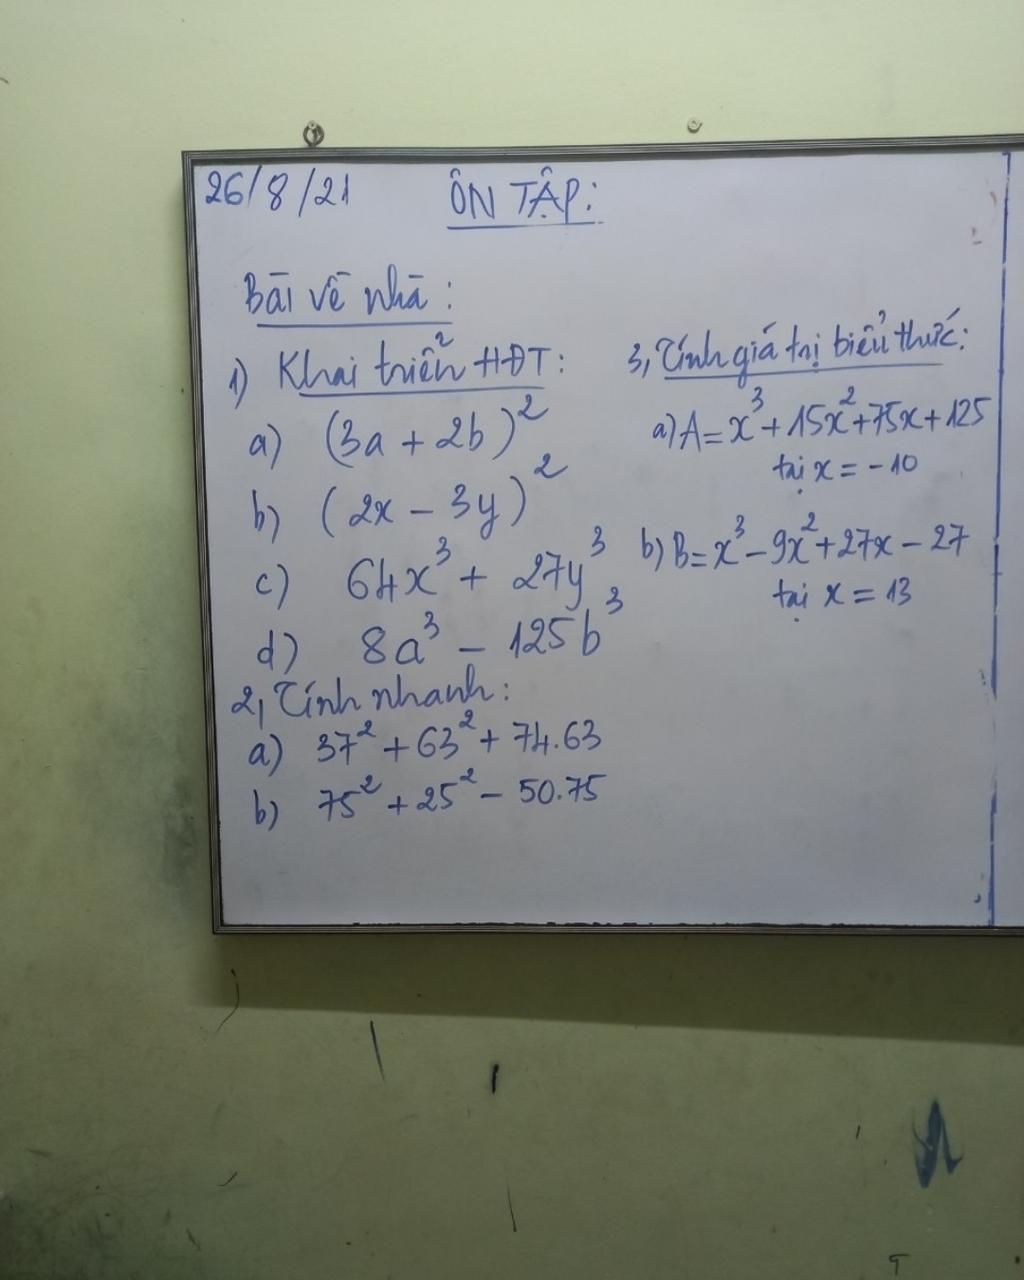 26/8/21 ÔN TẬP:
Bài về nhà:
1) Khai triển HĐT:
a) (3a + 2b)²
b) (2x - 3y)²
c) 64x³ + 27y³
d) 8a³ - 125b³
2, Tính nhanh:
a) 37² + 63² + 74.63
b) 75² + 25² - 50.75
3, Tính giá trị biểu thức:
a) A = x³ + 15x² + 75x + 125
tại x = -10
b) B = x³ - 9x² + 27x - 27
tại x = 13